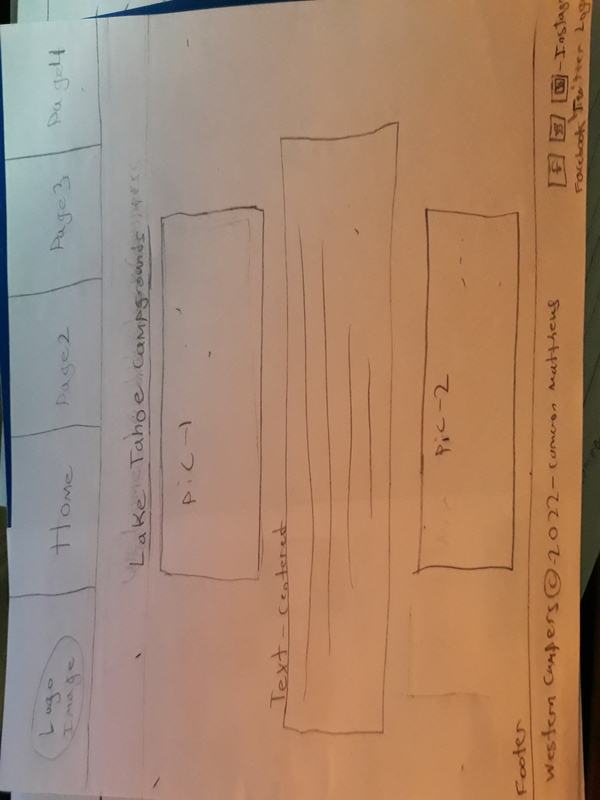 Logo
Image
Home
Page2
Page3
Page4
Lake Tahoe Campgrounds
Pic-1
Text-centered
Pic-2
Footer
Western Campers © 2022 - Cameron Matthews
F
-Instag
Facebook Twitter Logo